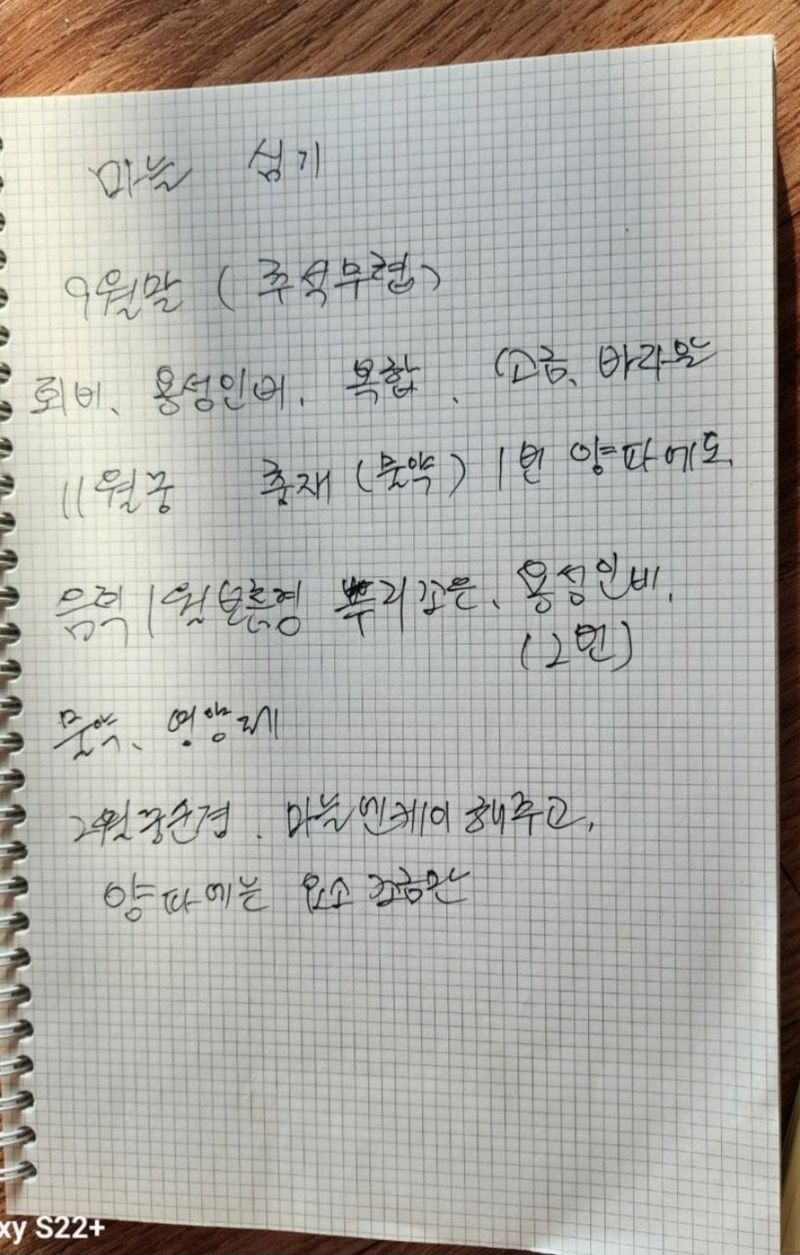 마늘 심기
9월말 (추석무렵)
퇴비, 용성인비, 복합, (소금, 바라운
11월중 충재 (물약) 1번 양파에도
음력 1월 보름경 뿌리꼬은, 용성인비,
(2번)
물약, 영양제
2월중순경, 마늘엔케이해주고,
양파에는 요소 조금만
xy S22+